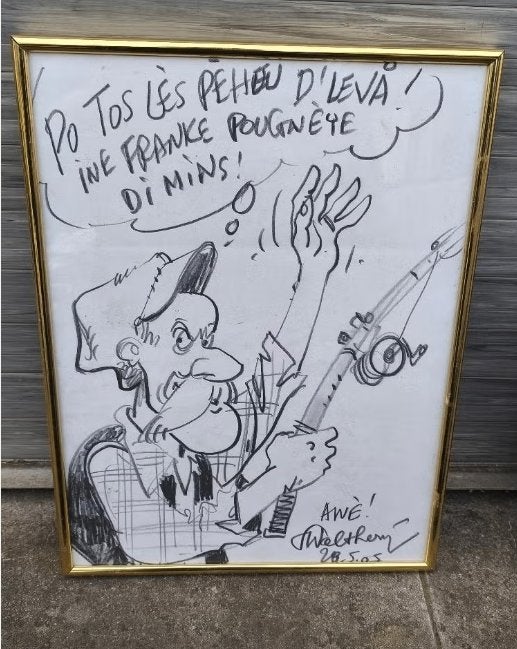 PO TOS LÈS PÈHEÛ D'LEVÅ!
INE FRANKE POUGNÈYE
DI MINS!
AWÈ!
Walthéry
28.5.05